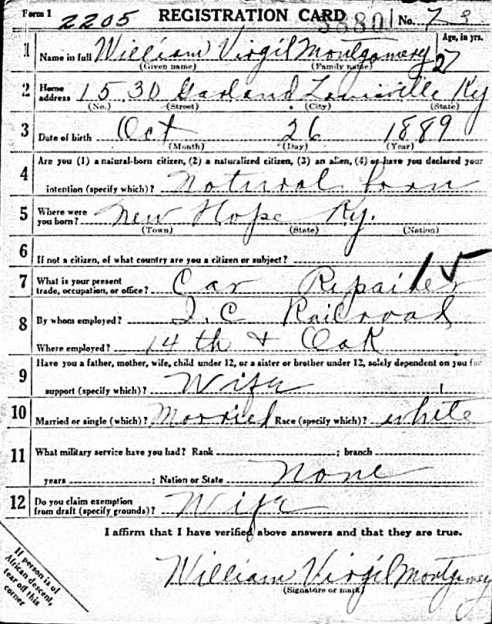 Form 1 2205 REGISTRATION CARD No. 73
Age, in yrs.
1 Name in full William Virgil Montgomery 27
(Given name) (Family name)
2 Home address 1530 Garland Louisville Ky
(No.) (Street) (City) (State)
3 Date of birth Oct 26 1889
(Month) (Day) (Year)
4 Are you (1) a natural-born citizen, (2) a naturalized citizen, (3) an alien, (4) or have you declared your
intention (specify which)? Natural born
5 Where were you born? New Hope Ky.
(Town) (State) (Nation)
6 If not a citizen, of what country are you a citizen or subject?
15
7 What is your present trade, occupation, or office? Car Repairer
8 By whom employed? I. C Railroad
Where employed? 14th & Oak
9 Have you a father, mother, wife, child under 12, or a sister or brother under 12, solely dependent on you for
support (specify which)? Wife
10 Married or single (which)? Married Race (specify which)? white
11 What military service have you had? Rank ; branch
years ; Nation or State None
12 Do you claim exemption from draft (specify grounds)? Wife
I affirm that I have verified above answers and that they are true.
William Virgil Montgomery
(Signature or mark)
If person is of
African descent,
tear off this
corner